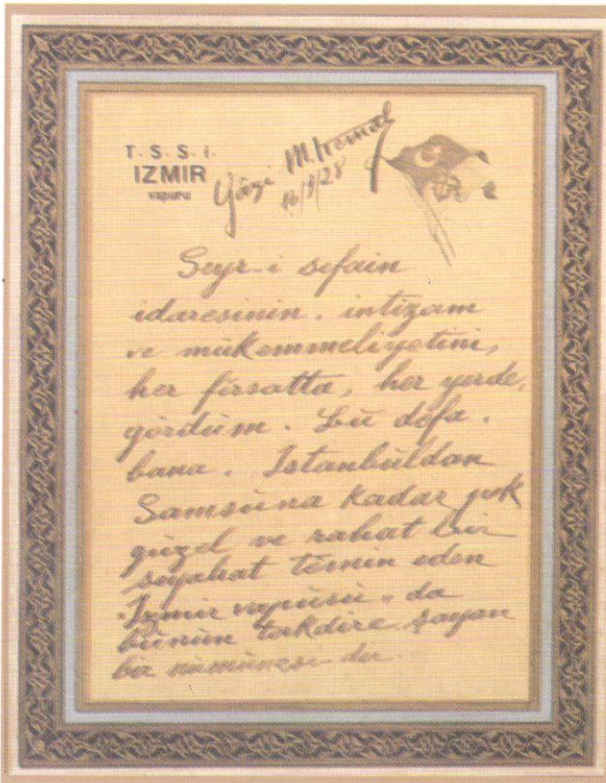 T. S. S. i.
IZMIR
vapuru
Gazi M. Kemal
16/9/28
Seyr-i sefain
idaresinin. intizam
ve mükemmeliyetini,
her firsatta, her yerde,
gördüm. Bu defa.
bana. Istanbuldan
Samsuna kadar çok
güzel ve rahat bir
seyahat temin eden
"Izmir vapuru" da
bunun takdire şayan
bir nümunesi dir.